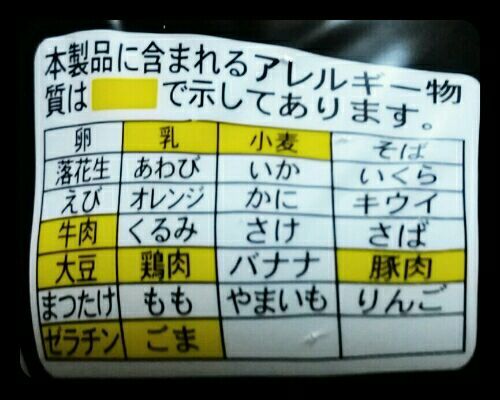 本製品に含まれるアレルギー物
質は で示してあります。
卵 乳 小麦 そば
落花生 あわび いか いくら
えび オレンジ かに キウイ
牛肉 くるみ さけ さば
大豆 鶏肉 バナナ 豚肉
まつたけ もも やまいも りんご
ゼラチン ごま